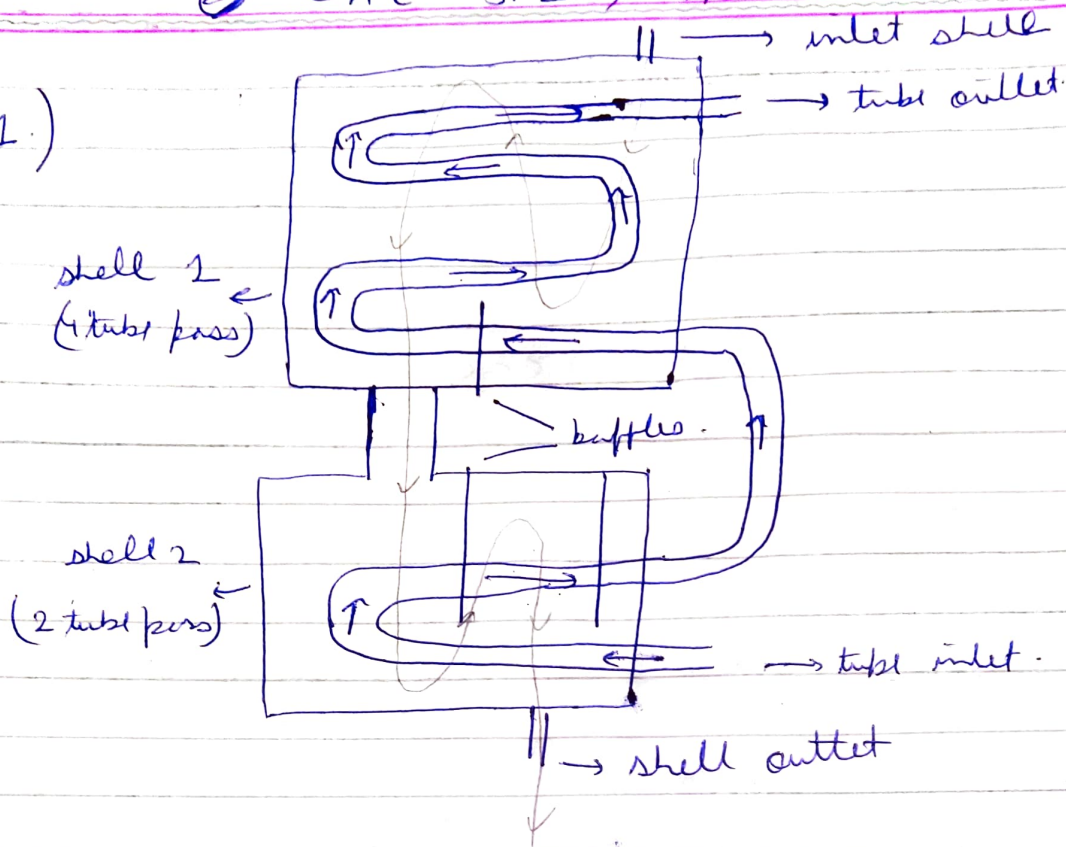 inlet shell
1.)
tube outlet.
shell 1
(4 tube pass)
baffles.
shell 2
(2 tube pass)
tube inlet.
shell outlet